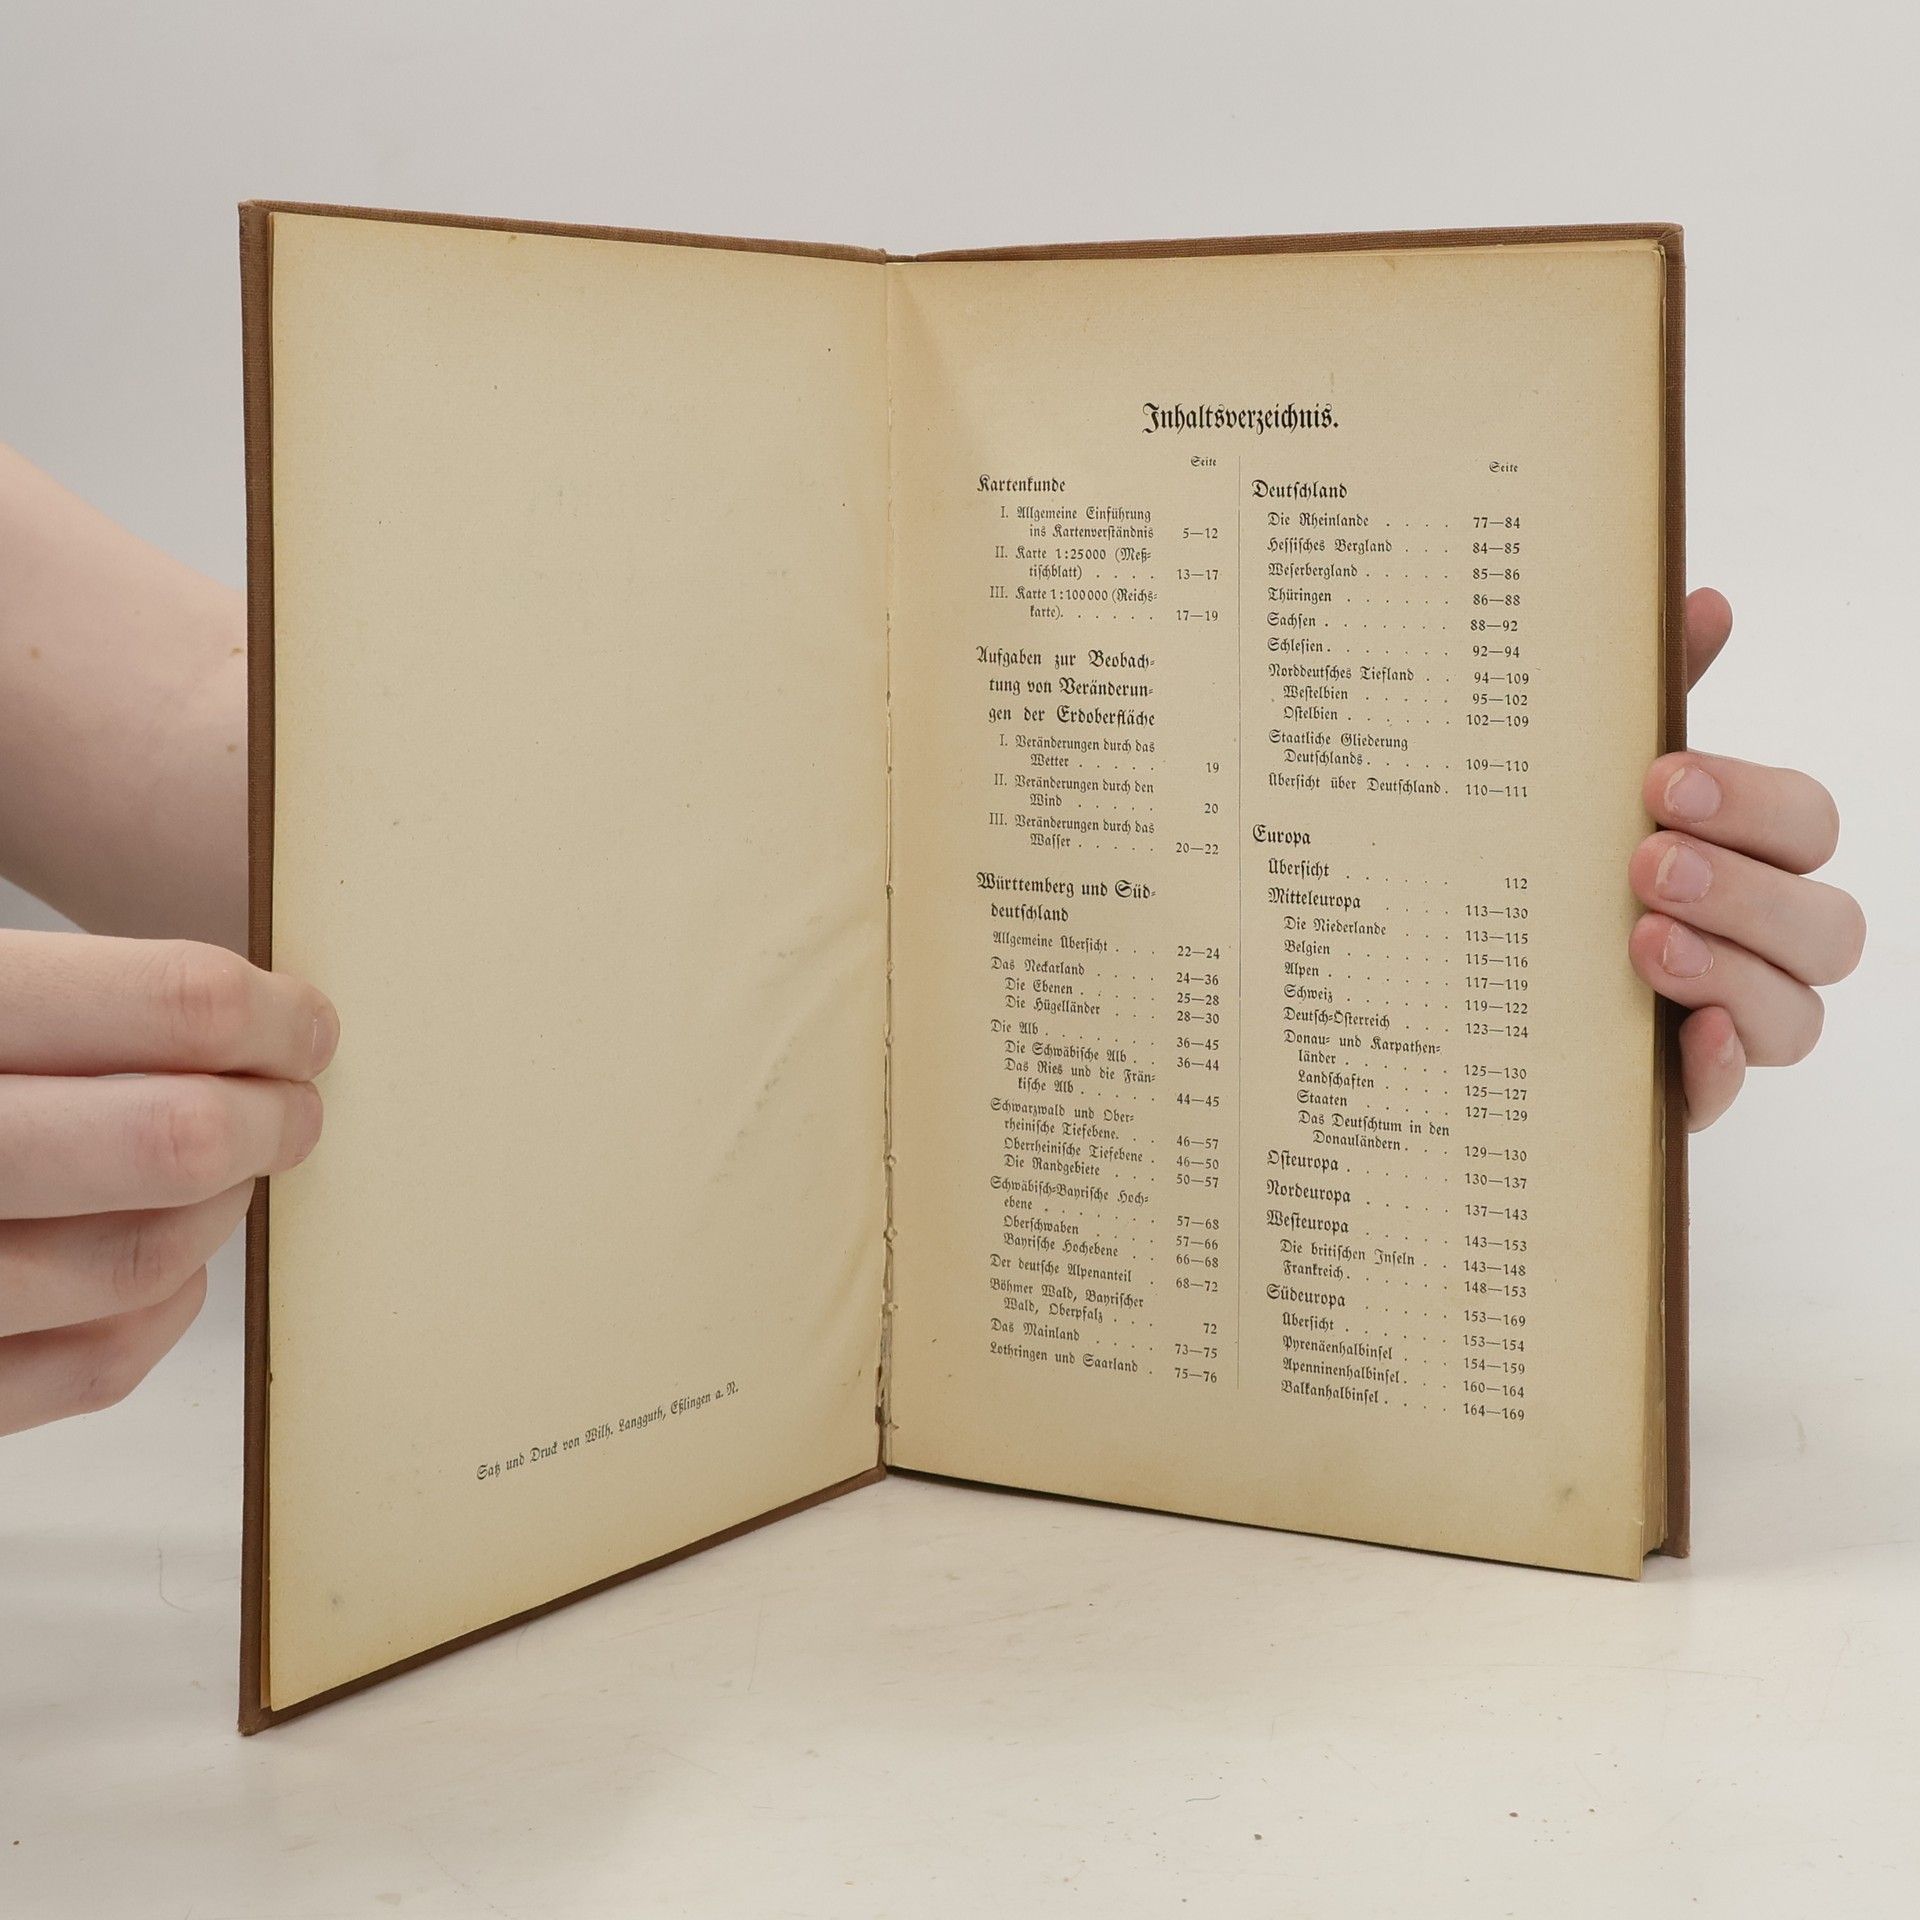 Satz und Druck von Wilh. Langguth, Eßlingen a. N.
Inhaltsverzeichnis.
Seite
Kartenkunde
I. Allgemeine Einführung
ins Kartenverständnis 5—12
II. Karte 1:25000 (Meß-
tischblatt) . . . . 13—17
III. Karte 1:100000 (Reichs-
karte). . . . . . 17—19
Aufgaben zur Beobach-
tung von Veränderun-
gen der Erdoberfläche
I. Veränderungen durch das
Wetter . . . . . 19
II. Veränderungen durch den
Wind . . . . . 20
III. Veränderungen durch das
Wasser . . . . . 20—22
Württemberg und Süd-
deutschland
Allgemeine Übersicht . . . 22—24
Das Neckarland . . . . 24—36
Die Ebenen . . . . . 25—28
Die Hügelländer . . . 28—30
Die Alb . . . . . . 36—45
Die Schwäbische Alb . . 36—44
Das Ries und die Frän-
kische Alb . . . . . 44—45
Schwarzwald und Ober-
rheinische Tiefebene. . . 46—57
Oberrheinische Tiefebene . 46—50
Die Randgebiete . . . 50—57
Schwäbisch-Bayrische Hoch-
ebene . . . . . . . 57—68
Oberschwaben . . . . 57—66
Bayrische Hochebene . . 66—68
Der deutsche Alpenanteil . 68—72
Böhmer Wald, Bayrischer
Wald, Oberpfalz . . . 72
Das Mainland . . . . 73—75
Lothringen und Saarland . 75—76
Seite
Deutschland
Die Rheinlande . . . . 77—84
Hessisches Bergland . . . 84—85
Weserbergland . . . . . 85—86
Thüringen . . . . . . 86—88
Sachsen . . . . . . . 88—92
Schlesien . . . . . . . 92—94
Norddeutsches Tiefland . . 94—109
Westelbien . . . . . 95—102
Ostelbien . . . . . . 102—109
Staatliche Gliederung
Deutschlands . . . . . 109—110
Übersicht über Deutschland . 110—111
Europa
Übersicht . . . . . . 112
Mitteleuropa . . . . 113—130
Die Niederlande . . . 113—115
Belgien . . . . . . 115—116
Alpen . . . . . . . 117—119
Schweiz . . . . . . 119—122
Deutsch-Österreich . . . 123—124
Donau- und Karpathen-
länder . . . . . . 125—130
Landschaften . . . . 125—127
Staaten . . . . . 127—129
Das Deutschtum in den
Donauländern . . . 129—130
Osteuropa . . . . . . 130—137
Nordeuropa . . . . . 137—143
Westeuropa . . . . . 143—153
Die britischen Inseln . . 143—148
Frankreich . . . . . 148—153
Südeuropa . . . . . 153—169
Übersicht . . . . . . 153—154
Pyrenäenhalbinsel . . . 154—159
Apenninenhalbinsel . . . 160—164
Balkanhalbinsel . . . . 164—169